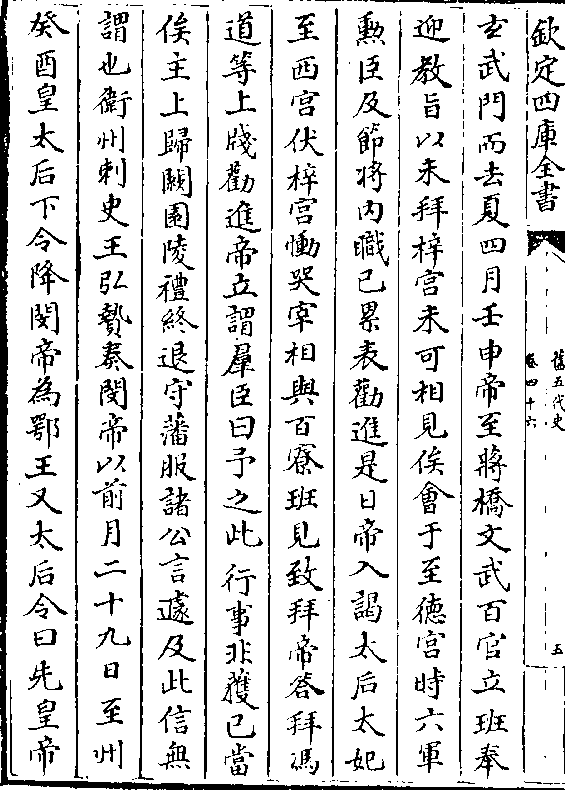 欽定四庫全書
舊五代史
卷四十六
五
玄武門而去夏四月壬申帝至蔣橋文武百官立班奉
迎教旨以未拜梓宫未可相見俟會于至徳宫時六軍
勲臣及節將内職已累表勸進是日帝入謁太后太妃
至西宫伏梓宫慟哭宰相與百寮班見致拜帝答拜馮
道等上牋勸進帝立謂羣臣曰予之此行事非獲已當
俟主上歸闕園陵禮終退守藩服諸公言遽及此信無
謂也衛州刺史王弘贄奏閔帝以前月二十九日至州
癸酉皇太后下令降閔帝為鄂王又太后令曰先皇帝